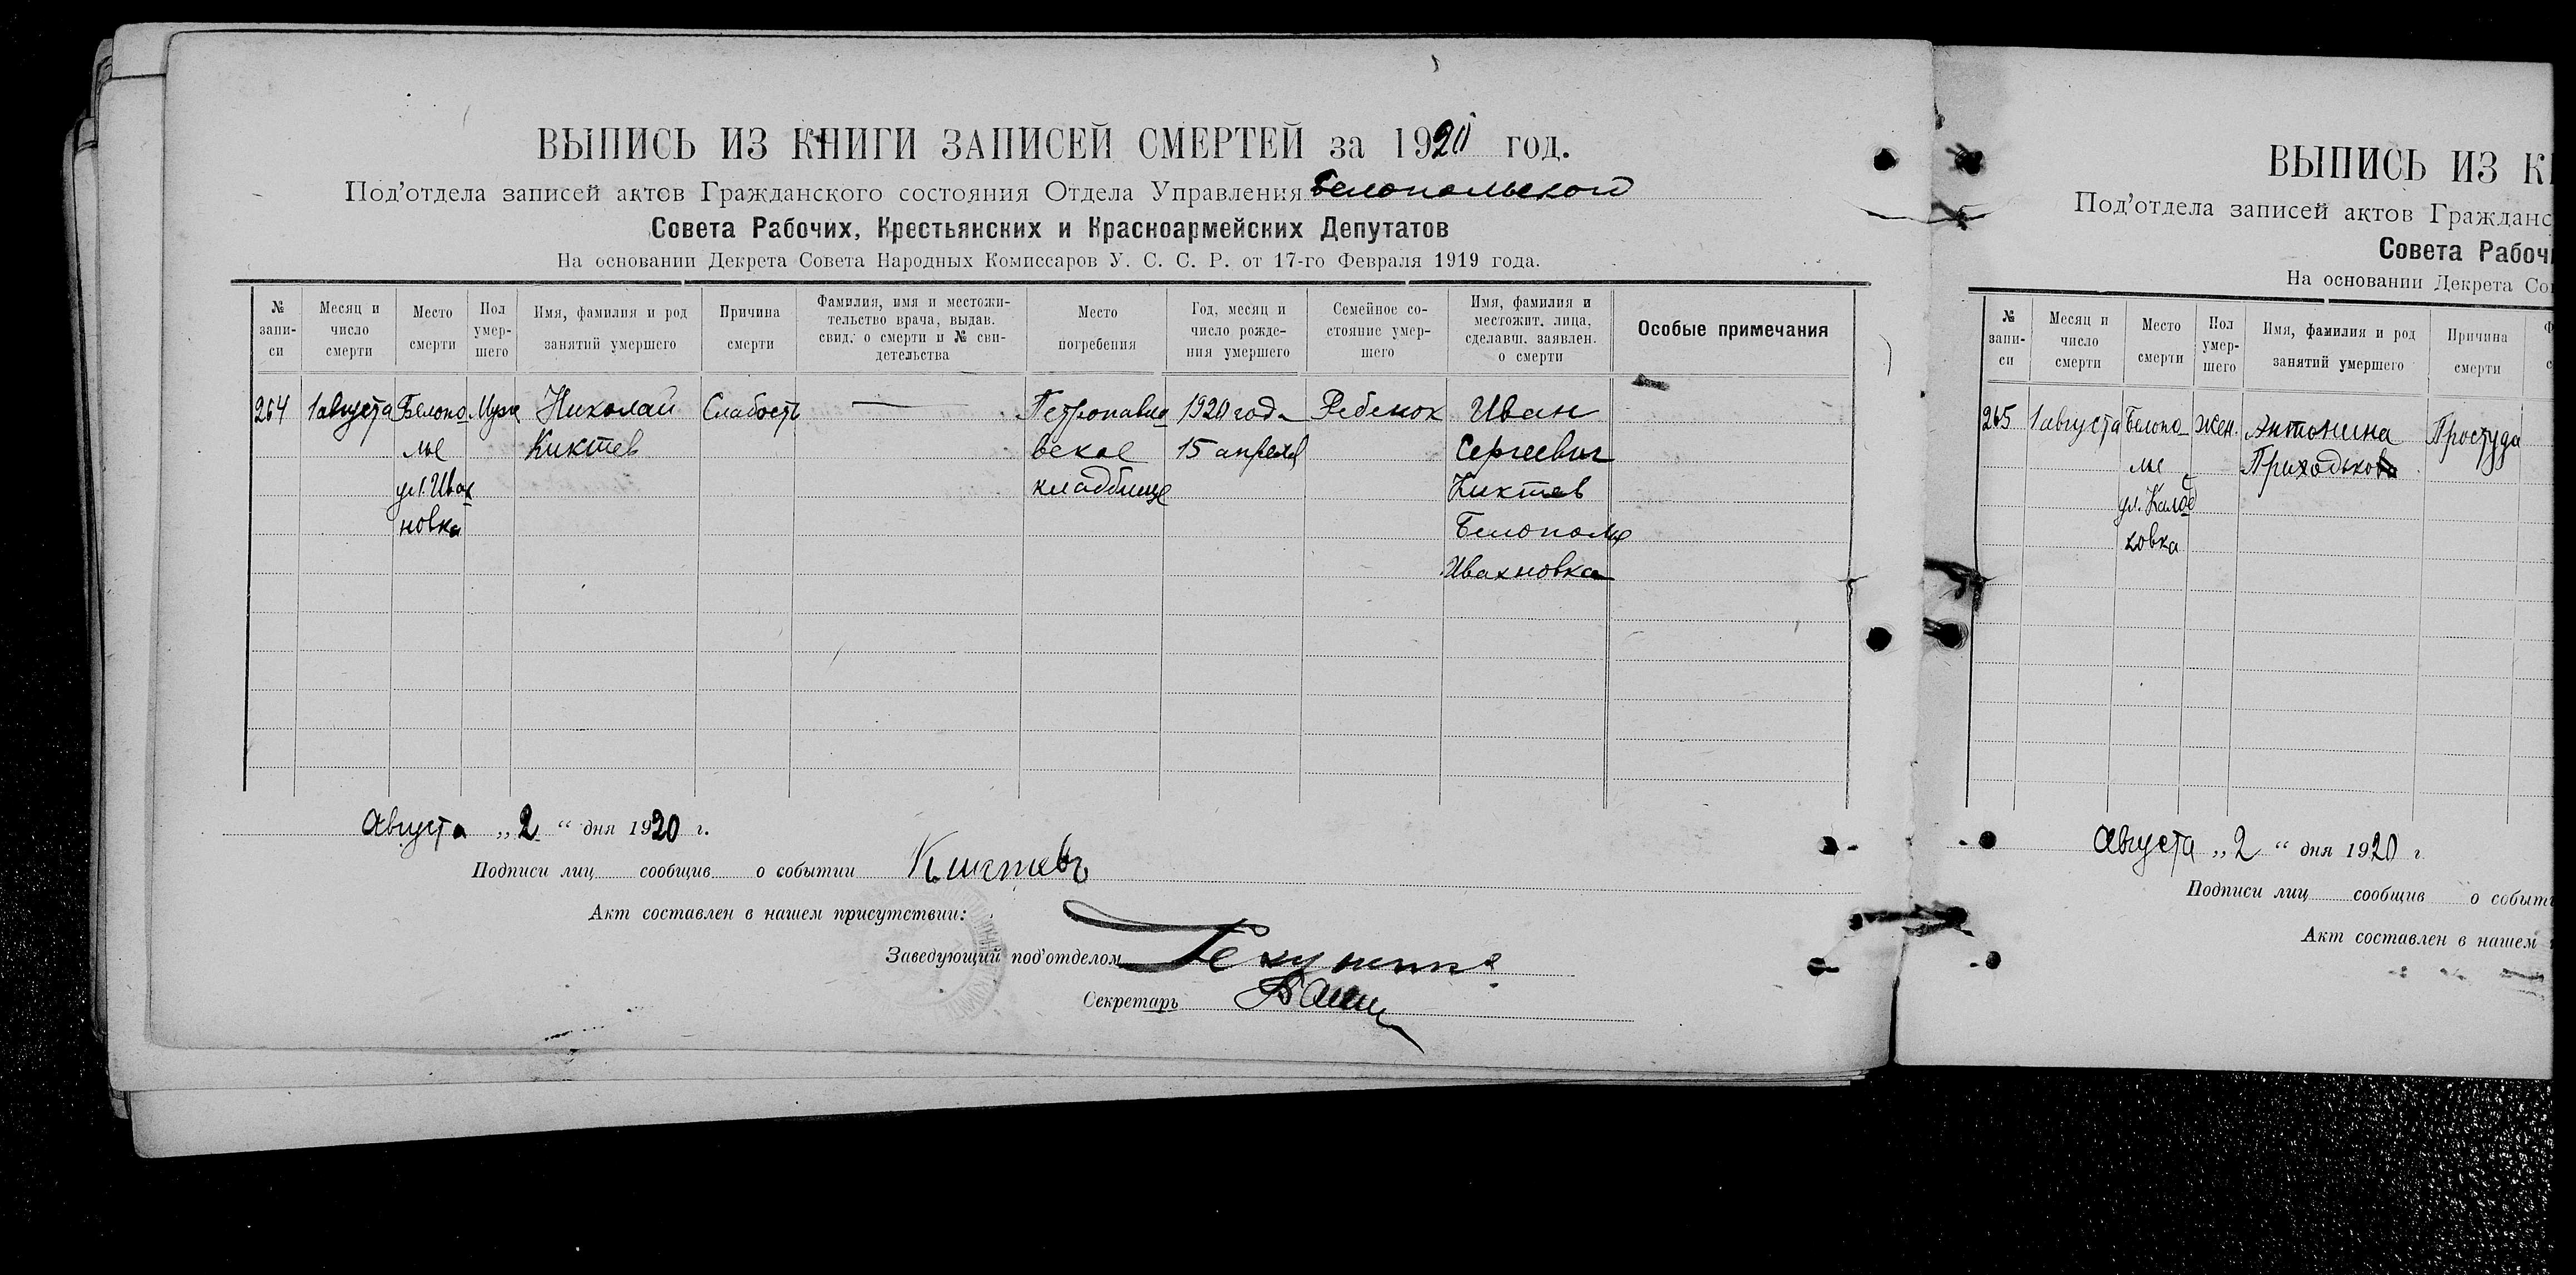 ВЫПИСЬ ИЗ КНИГИ ЗАПИСЕЙ СМЕРТЕЙ за 1920 год.
Под'отдела записей актов Гражданского состояния Отдела Управления Белопольского
Совета Рабочих, Крестьянских и Красноармейских Депутатов
На основании Декрета Совета Народных Комиссаров У. С. С. Р. от 17-го Февраля 1919 года.
№ запи-
си
Месяц и
число
смерти
Место
смерти
Пол
умер-
шего
Имя, фамилия и род
занятий умершего
Причина
смерти
Фамилия, имя и местожи-
тельство врача, выдав.
свид. о смерти и № сви-
детельства
Место
погребения
Год, месяц и
число рожде-
ния умершего
Семейное со-
стояние умер-
шего
Имя, фамилия и
местожит. лица,
сделавш. заявлен.
о смерти
Особые примечания
264
1 августа
Белопо
лье
ул. Ивах
новка
Муж
Николай
Киктев
Слабость
—
Петропавло
вское
кладбище
1920 год
15 апреля
Ребенок
Иван
Сергеевич
Киктев
Белополье
Ивахновка
Августа „ 2 “ дня 1920 г.
Подписи лиц сообщив о событии Киктевъ
Акт составлен в нашем присутствии:
Заведующий под'отделом
Секретарь
ВЫПИСЬ ИЗ К
Под'отдела записей актов Гражданс
Совета Рабочи
На основании Декрета Со
№
запи-
си
Месяц и
число
смерти
Место
смерти
Пол
умер-
шего
Имя, фамилия и род
занятий умершего
Причина
смерти
265
1 августа
Белопо
лье
жен.
Антонина
Приходькова
Простуда
Августа „ 2 “ дня 1920 г
Подписи лиц сообщив о событ
Акт составлен в нашем